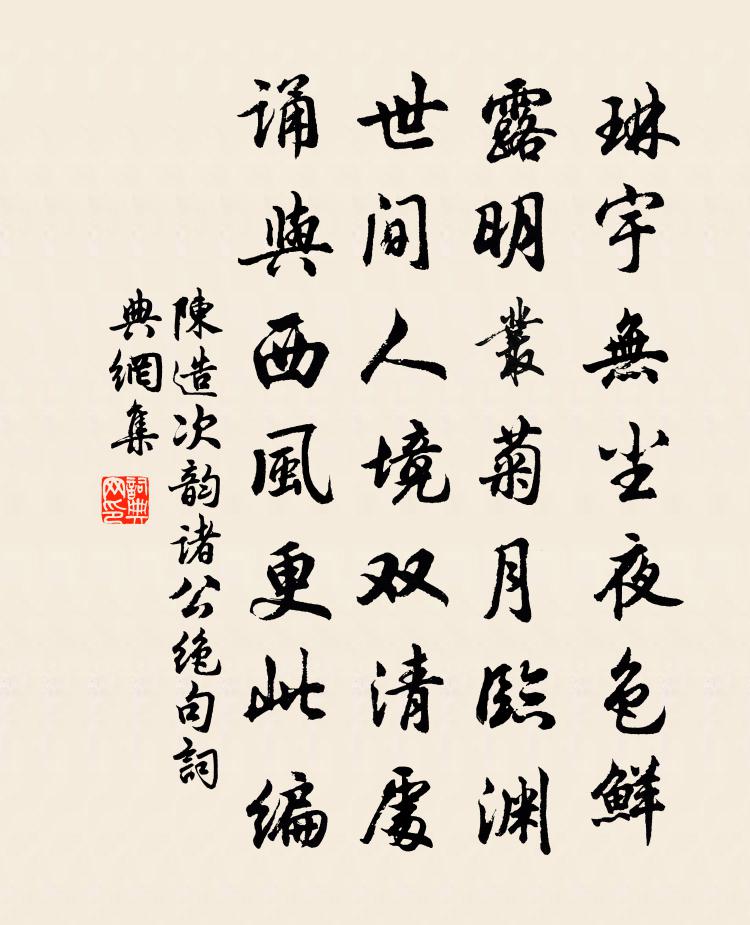 琳宇無尘夜色鮮
露明叢菊月臨渊
世间人境双清處
诵與西風更此编
陳造次韵诸公绝句詞
典網集
詞典
网印